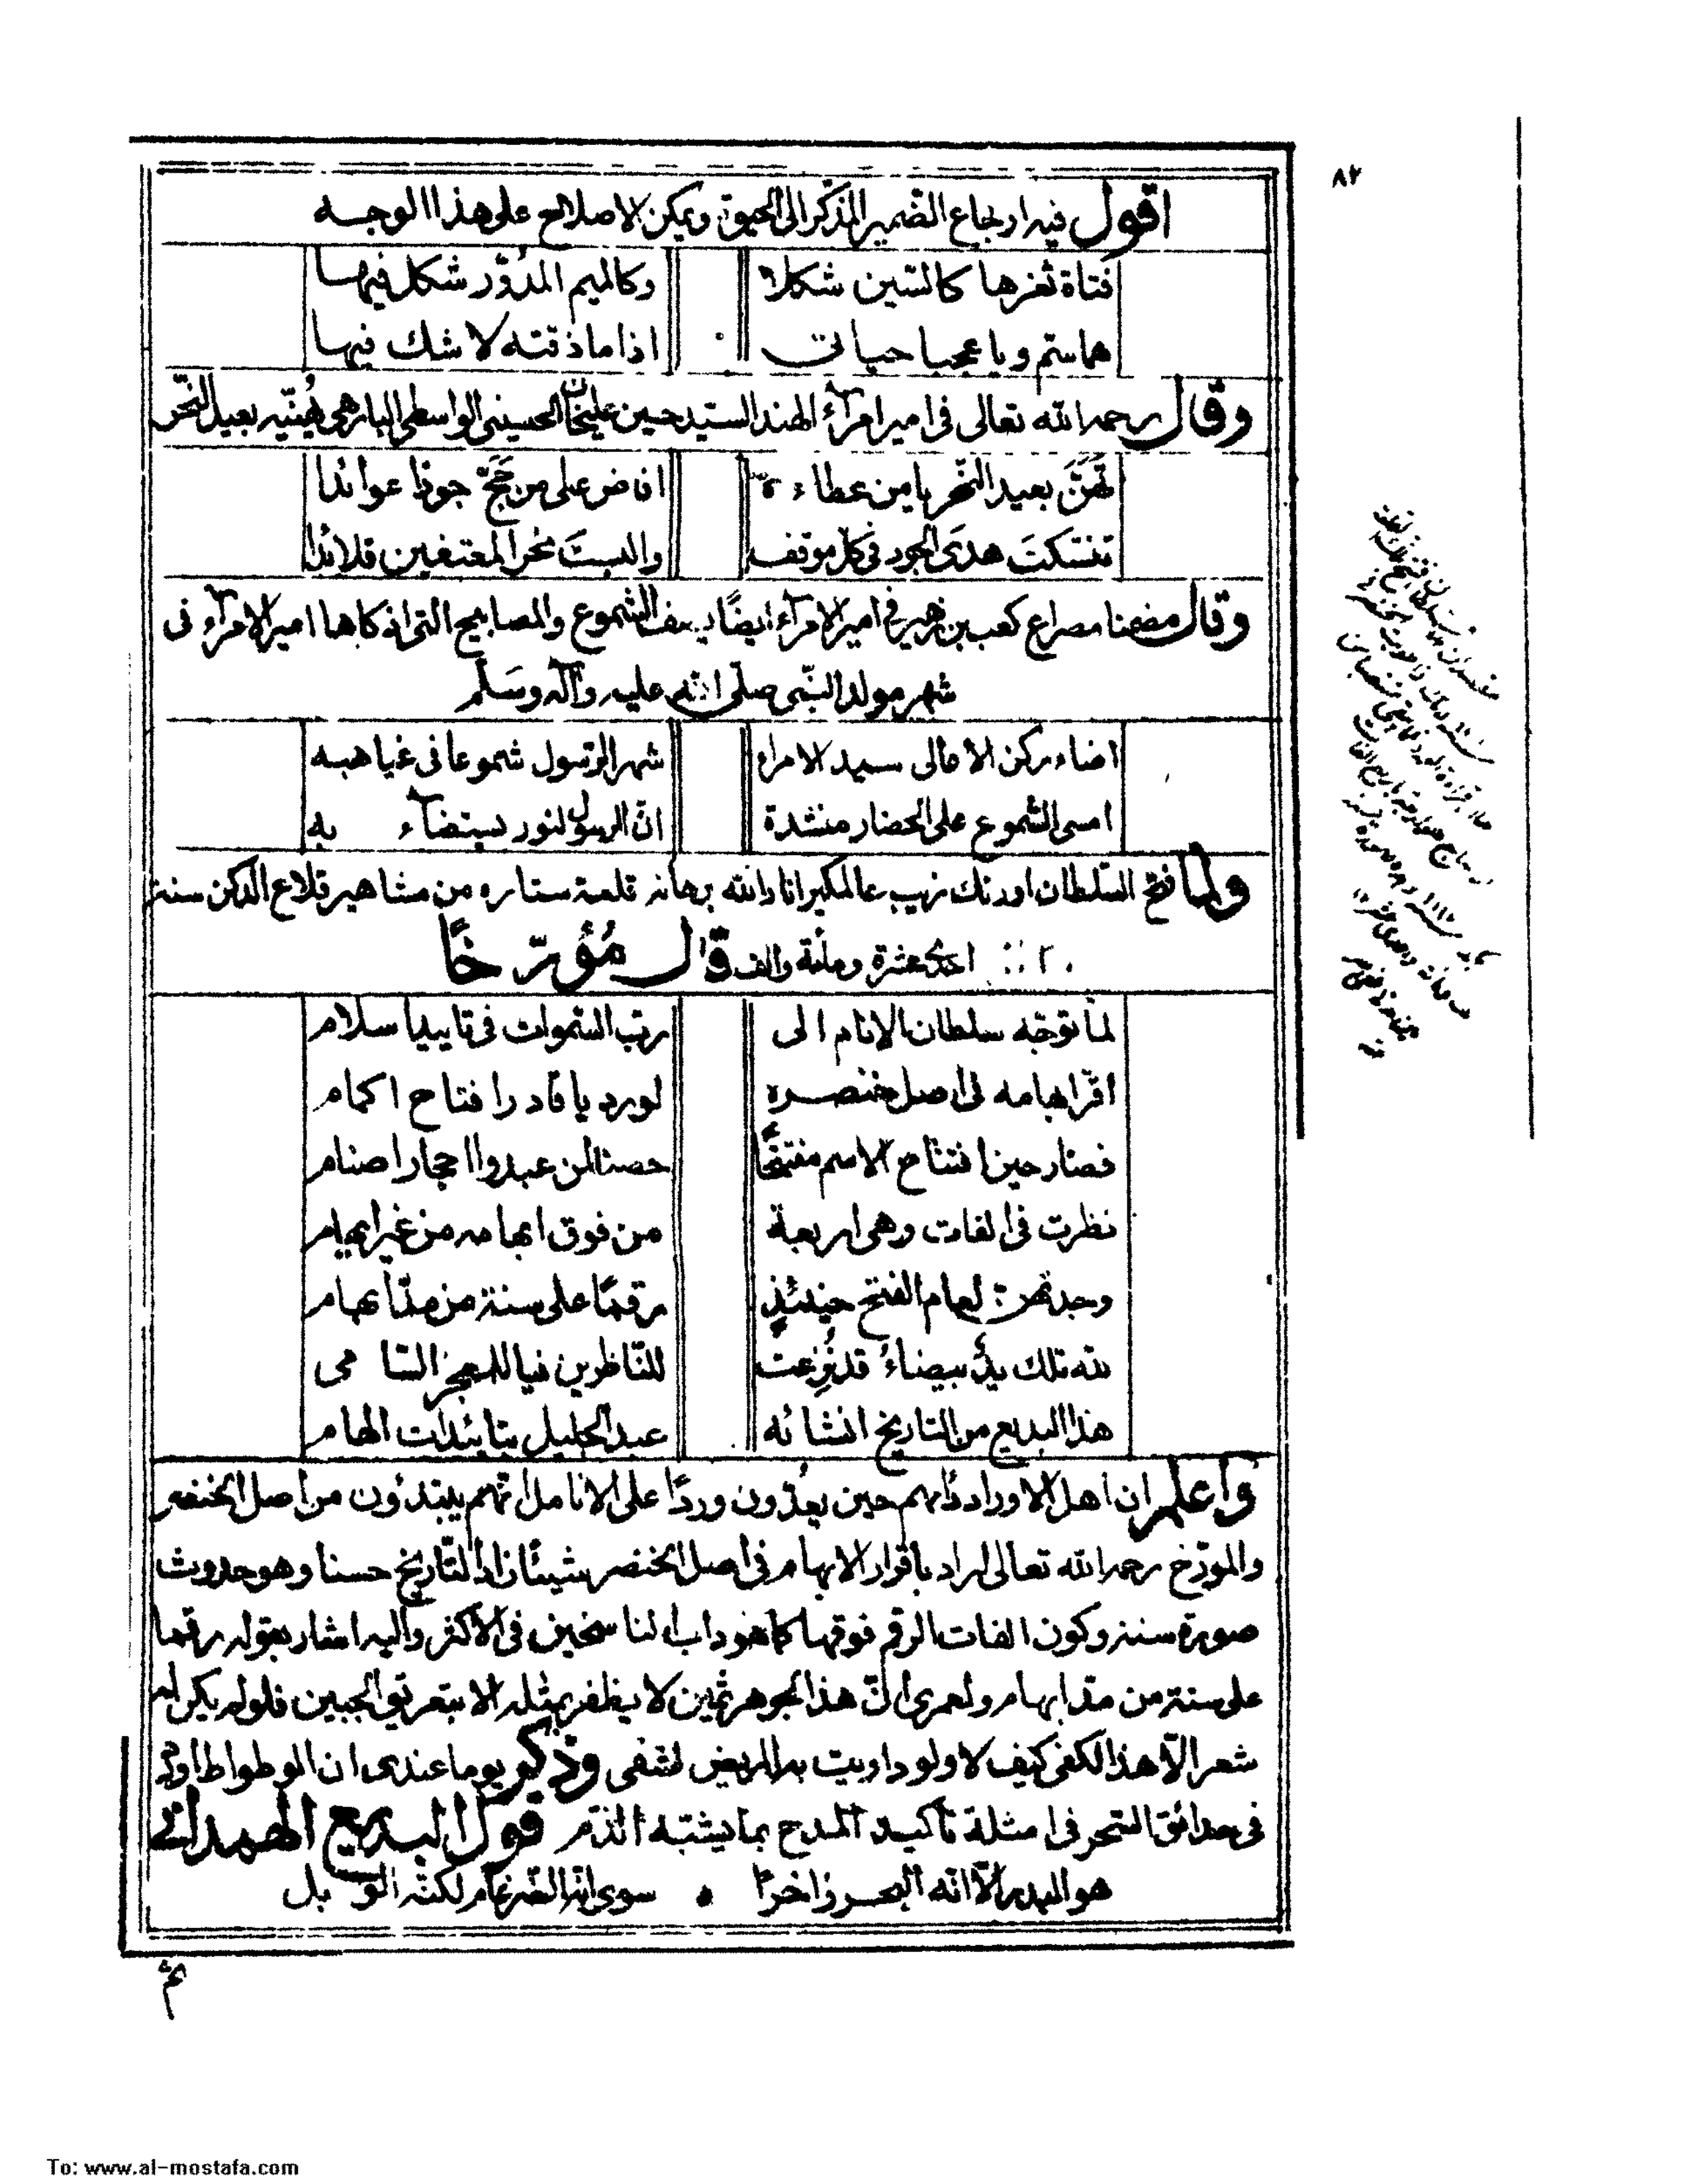 ٨٢
اقول فيه ارجاع الضمير المذكّر الى الحيوة ويمكن الاصلاح على هذا الوجه
فتاة ثغرها كالسّين شكلا وكالميم المدوّر شكل فيها
هما سم ويا عجبا حياتى اذا ما ذقته لا شك فيها
وقال رحمه الله تعالى فى امير امرآء الهند السيد حسين عليخان الحسينى الواسطى البارهى يُهنّيه بعيد النحر
تَهَنَّ بعيد النّحر يا من عطاءه افاض على من حَجَّ جودا عوائدا
تنسّكتَ هدىَ الجود فى كل موقف والبستَ نحر المعتفين قلائدا
وقال مضمنا مصراع كعب بن زهير فى امير الامرآء ايضًا يصف الشموع والمصابيح التى اذكاها امير الامرآء فى
شهر مولد النّبى صلّى الله عليه وآله وسَلّم
اضاء ركن الاعالى سيد الامراء شهر الرسول شموعا فى غياهبه
امسى الشموع على الحضار منشدة انّ الرسول لنور يستضآء به
ولما فتح السّلطان اورنك زيب عالمكير انار الله برهانه قلعة ستاره من مشاهير قلاع الدكن سنة
احدى عشرة ومائة والف قال مُؤرّخًا
لما توجّه سلطان الانام الى ربّ السّموات فى تاييد اسلام
اقرّ ابهامه فى اصل خنصره لورد يا قادر افتاح اكمام
فصار حين افتتاح الاسم مفتتحًا حصنا لمن عبدوا احجار اصنام
نظرت فى الفات وهى اربعة من فوق ابهامه من غير ابهام
وجدتهن لعام الفتح حينئذٍ رقمًا على سنة من مدّ ابهام
لله تلك يدٌ بيضاءُ قد نُزِعت للنّاظرين فيا للمعجز السّامى
هذا البديع من التاريخ انشائه عبد الجليل بتائيدات الهام
واعلم ان اهل الاوراد دابهم حين يعدّون وردًا على الانامل انهم يبتدئون من اصل الخنصر
والمورّخ رحمه الله تعالى اراد باقرار الابهام فى اصل الخنصر شيئا زاد التّاريخ حسنا وهو حدوث
صورة سنة وكون الفات الرقم فوقها كما هو داب الناسخين فى الاكثر واليه اشار بقوله رقما
على سنة من مدّ ابهام ولعمرى انّ هذا الجوهر ثمين لا يظفر بمثله الا بتعريق الجبين فلو لم يكن له
شعر الّا هذا لكفى كيف لا ولو داويت به المريض لشفى وذكر يوما عندى ان الوطواط اورد
فى حدائق السّحر فى امثلة تاكيد المدح بما يشبه الذم قول البديع الهمدانى
هو البدر الّا انّه البحر زاخرًا سوى انّه الضّرغام لكنّه الوبل
To: www.al-mostafa.com